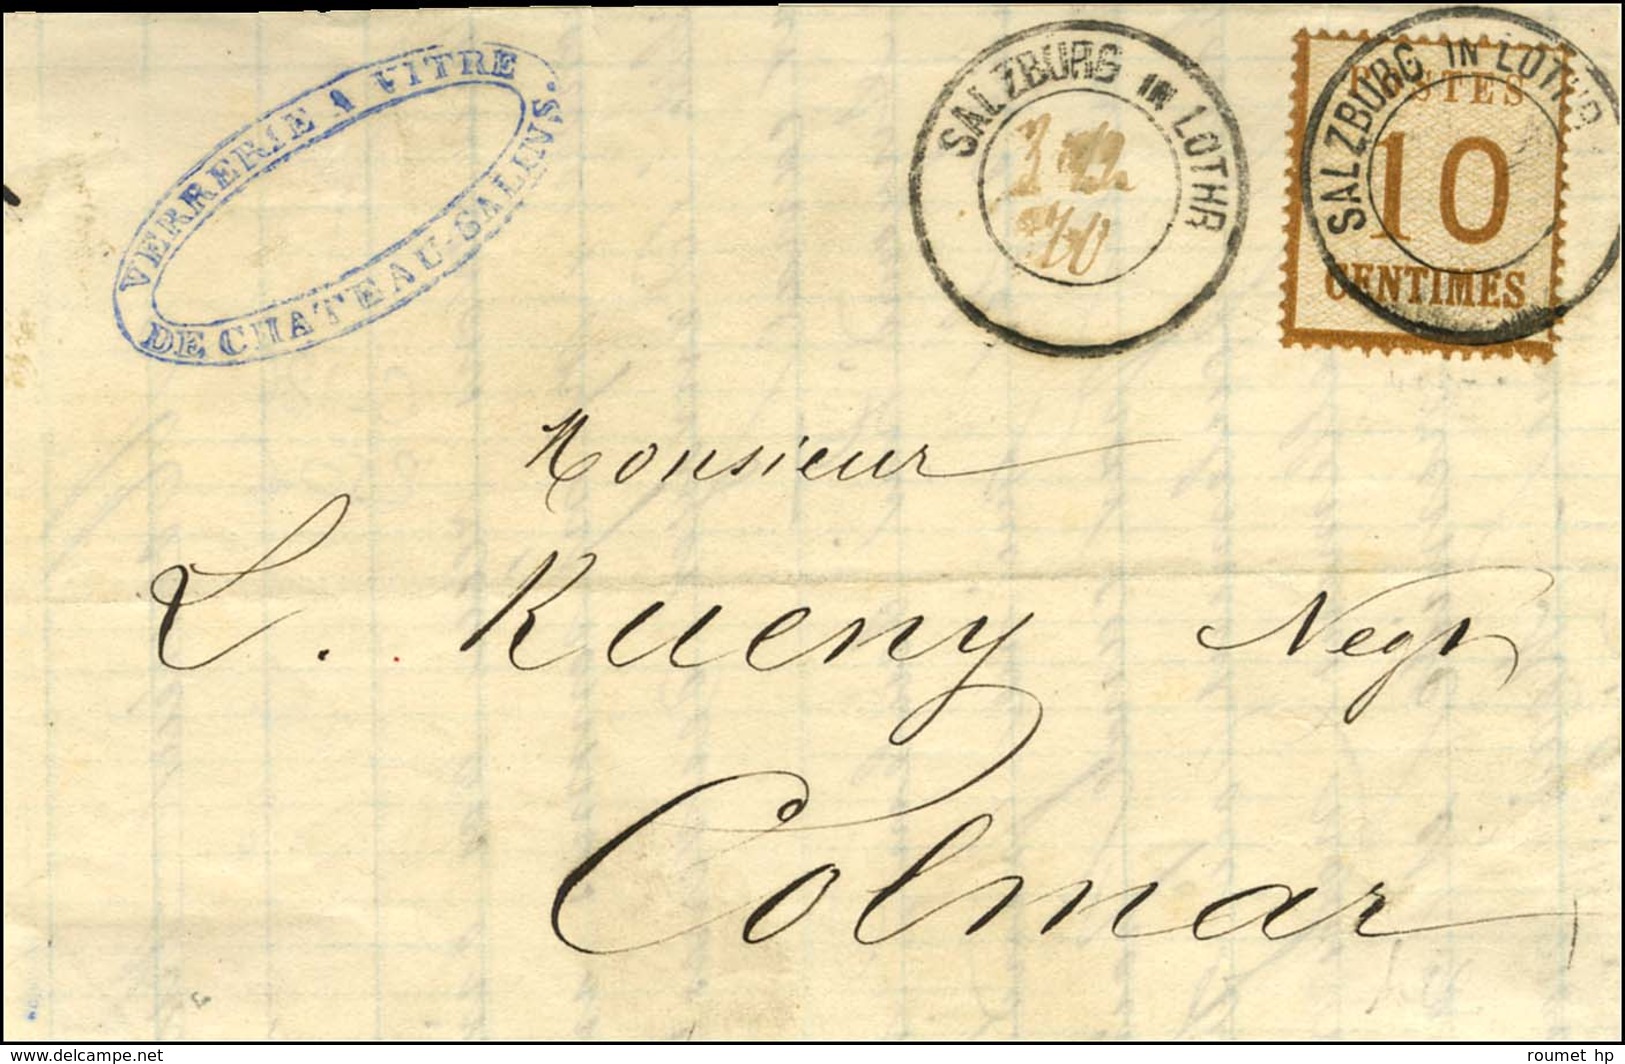 VERRERIE A VITRE
DE CHATEAU-SALINS.
SALZBURG IN LOTHR
SALZBURG IN LOTHR
POSTES
10
CENTIMES
Monsieur
L. Rueny Negt
Colmar
www.delcampe.net
roumet hp